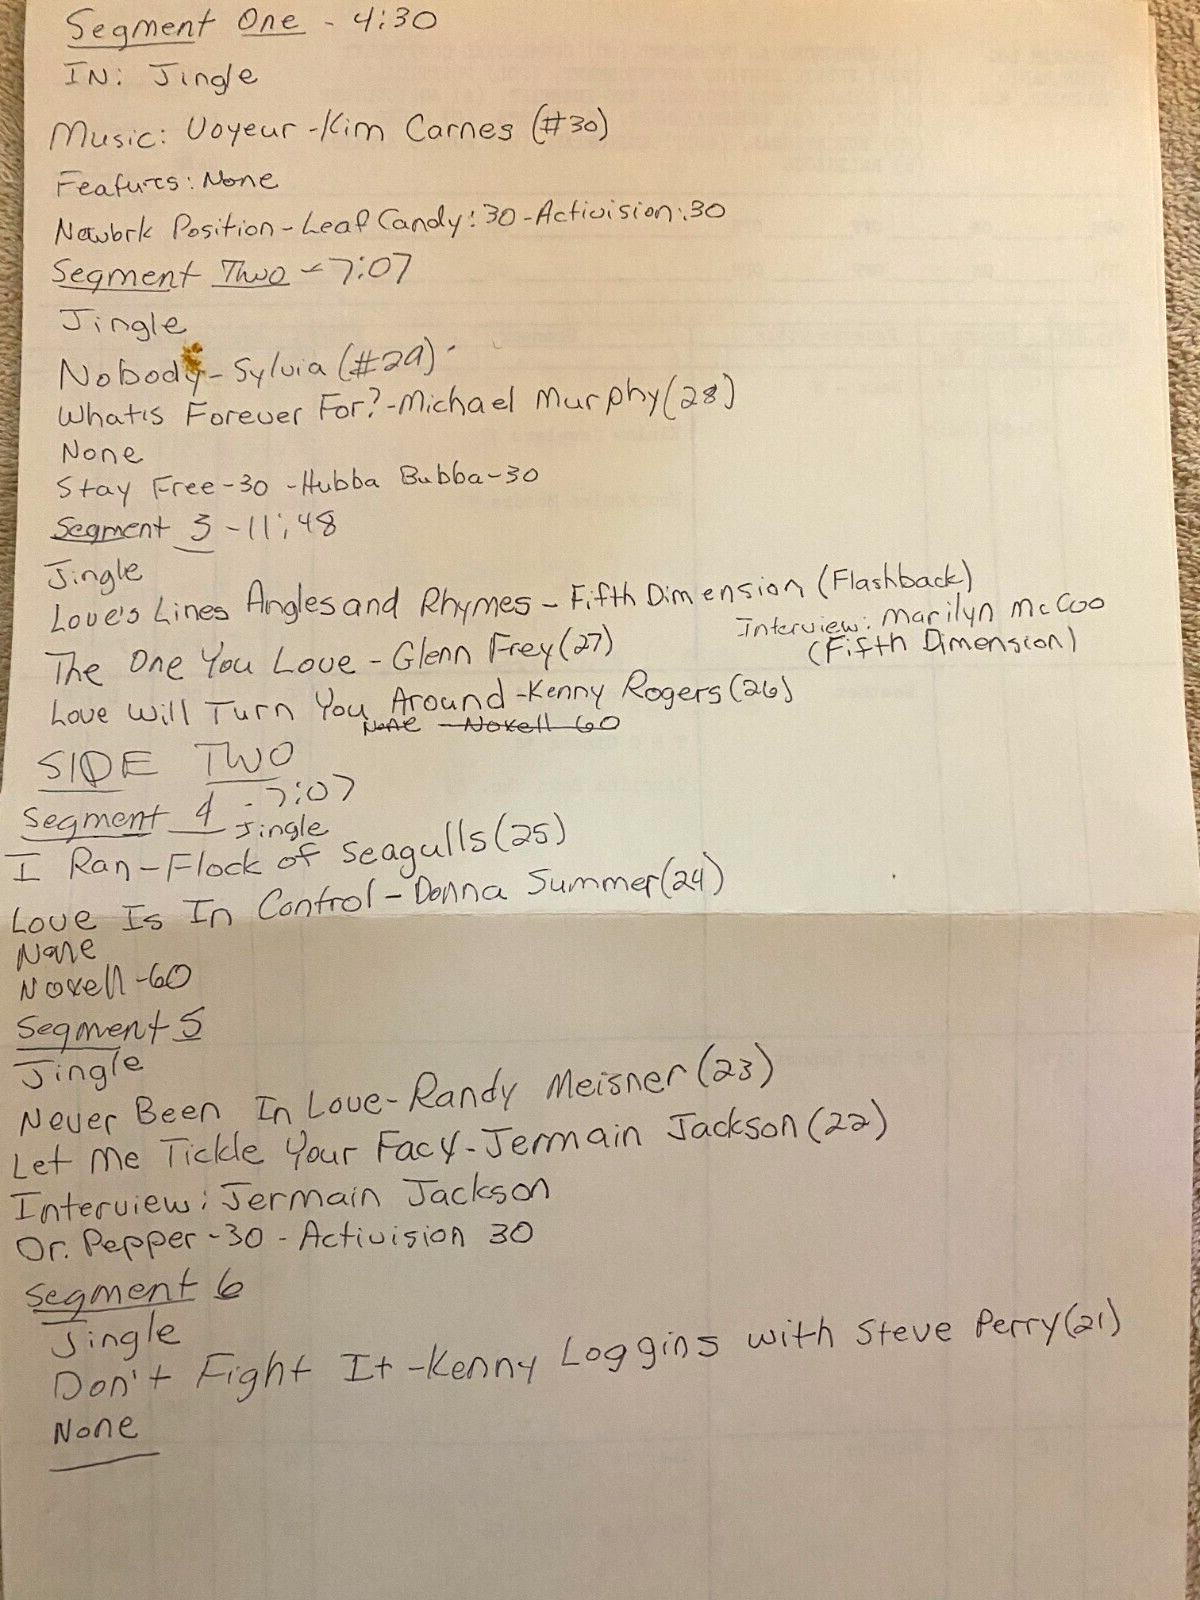 Segment One - 4:30
IN: Jingle
Music: Voyeur - Kim Carnes (#30)
Featurs: None
Newtork Position - Leaf Candy:30 - Activision:30
Segment Two - 7:07
Jingle
Nobody - Sylvia (#29)
What is Forever For? - Michael Murphy (28)
None
Stay Free - 30 - Hubba Bubba - 30
Segment 3 - 11:48
Jingle
Love's Lines Angles and Rhymes - Fifth Dimension (Flashback)
Interview: Marilyn McCoo
(Fifth Dimension)
The One You Love - Glenn Frey (27)
Love Will Turn You Around - Kenny Rogers (26)
None - Noxell 60
SIDE TWO
Segment 4 - 7:07
Jingle
I Ran - Flock of Seagulls (25)
Love Is In Control - Donna Summer (24)
None
Noxell - 60
Segment 5
Jingle
Never Been In Love - Randy Meisner (23)
Let Me Tickle Your Facy - Jermain Jackson (22)
Interview: Jermain Jackson
Dr. Pepper - 30 - Activision 30
Segment 6
Jingle
Don't Fight It - Kenny Loggins with Steve Perry (21)
None